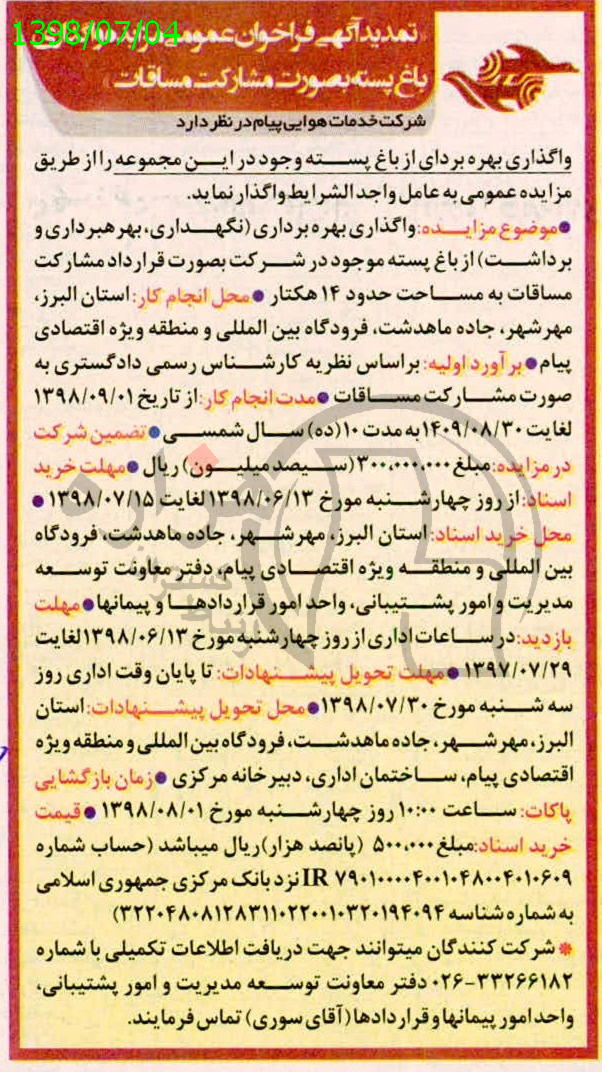 1398/07/04
«تمدید آگهی فراخوان عمومی
باغ پسته بصورت مشارکت مساقات»
شرکت خدمات هوایی پیام در نظر دارد
واگذاری بهره بردای از باغ پسته وجود در این مجموعه را از طریق
مزایده عمومی به عامل واجد الشرایط واگذار نماید.
●موضوع مزایده:واگذاری بهره برداری (نگهداری، بهرهبرداری و
برداشت) از باغ پسته موجود در شرکت بصورت قرارداد مشارکت
مساقات به مساحت حدود ۱۴ هکتار ●محل انجام کار: استان البرز،
مهرشهر، جاده ماهدشت، فرودگاه بین المللی و منطقه ویژه اقتصادی
پیام ●برآورد اولیه: براساس نظریه کارشناس رسمی دادگستری به
صورت مشارکت مساقات ●مدت انجام کار:از تاریخ ۱۳۹۸/۰۹/۰۱
لغایت ۱۴۰۹/۰۸/۳۰ به مدت ۱۰(ده) سال شمسی ●تضمین شرکت
در مزایده: مبلغ ۳۰۰،۰۰۰،۰۰۰ (سیصد میلیون) ریال ●مهلت خرید
اسناد: از روز چهارشنبه مورخ ۱۳۹۸/۰۶/۱۳ لغایت ۱۳۹۸/۰۷/۱۵ ●
محل خرید اسناد: استان البرز، مهرشهر، جاده ماهدشت، فرودگاه
بین المللی و منطقه ویژه اقتصادی پیام، دفتر معاونت توسعه
مدیریت و امور پشتیبانی، واحد امور قراردادها و پیمانها ●مهلت
بازدید: در ساعات اداری از روز چهارشنبه مورخ ۱۳۹۸/۰۶/۱۳ لغایت
۱۳۹۷/۰۷/۲۹ ●مهلت تحویل پیشنهادات: تا پایان وقت اداری روز
سه شنبه مورخ ۱۳۹۸/۰۷/۳۰ ●محل تحویل پیشنهادات: استان
البرز، مهرشهر، جاده ماهدشت، فرودگاه بین المللی و منطقه ویژه
اقتصادی پیام، ساختمان اداری، دبیرخانه مرکزی ●زمان بازگشایی
پاکات: ساعت ۱۰:۰۰ روز چهارشنبه مورخ ۱۳۹۸/۰۸/۰۱ ●قیمت
خرید اسناد:مبلغ ۵۰۰،۰۰۰ (پانصد هزار) ریال میباشد (حساب شماره
IR ۷۹۰۱۰۰۰۰۴۰۰۱۰۴۸۰۰۴۰۱۰۶۰۹ نزد بانک مرکزی جمهوری اسلامی
به شماره شناسه ۳۲۲۰۴۸۰۸۱۲۸۳۱۱۰۲۲۰۰۱۰۳۲۰۱۹۴۰۹۴)
* شرکت کنندگان میتوانند جهت دریافت اطلاعات تکمیلی با شماره
۰۲۶-۳۳۲۶۶۱۸۲ دفتر معاونت توسعه مدیریت و امور پشتیبانی،
واحد امور پیمانها و قراردادها (آقای سوری) تماس فرمایند.